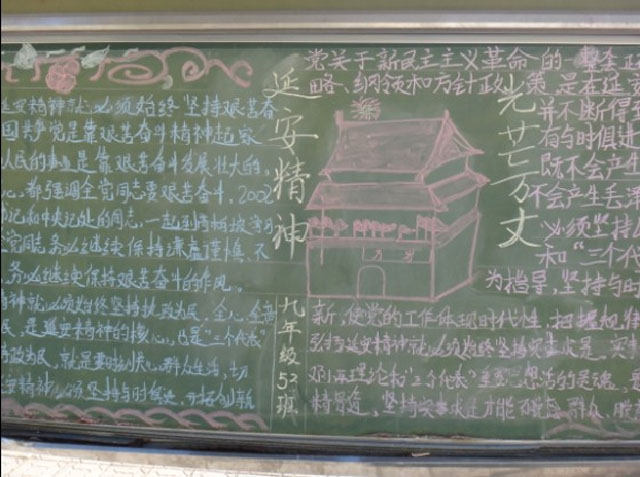 延安精神就必须始终坚持艰苦奋
国共产党是靠艰苦奋斗精神起家
人民的事业是靠艰苦奋斗发展壮大的
心,都强调全党同志要艰苦奋斗,2002
书记和中央记处的同志,一起到西柏坡学习
党同志务必继续保持谦虚谨慎、不
务必继续保持艰苦奋斗的作风。
精神就必须始终坚持执政为民,全心全
民,是延安精神的核心,也是"三个代表"
执政为民,就是要时刻关心群众生活,切
安精神必须坚持与时俱进,开拓创新
延安精神
光芒万丈
九年级53班
党关于新民主主义革命的
略、纲领和方针政策,是在延安
并不断得
有与时俱进
既不会产生
不会产生毛泽
必须坚持
和"三个代
为指导,坚持与时
新,使党的工作体现时代性,把握规律
弘扬延安精神就必须始终坚持实事求是。实事
邓小平理论和"三个代表"重要思想的灵魂,
精品造,坚持实事求是才能